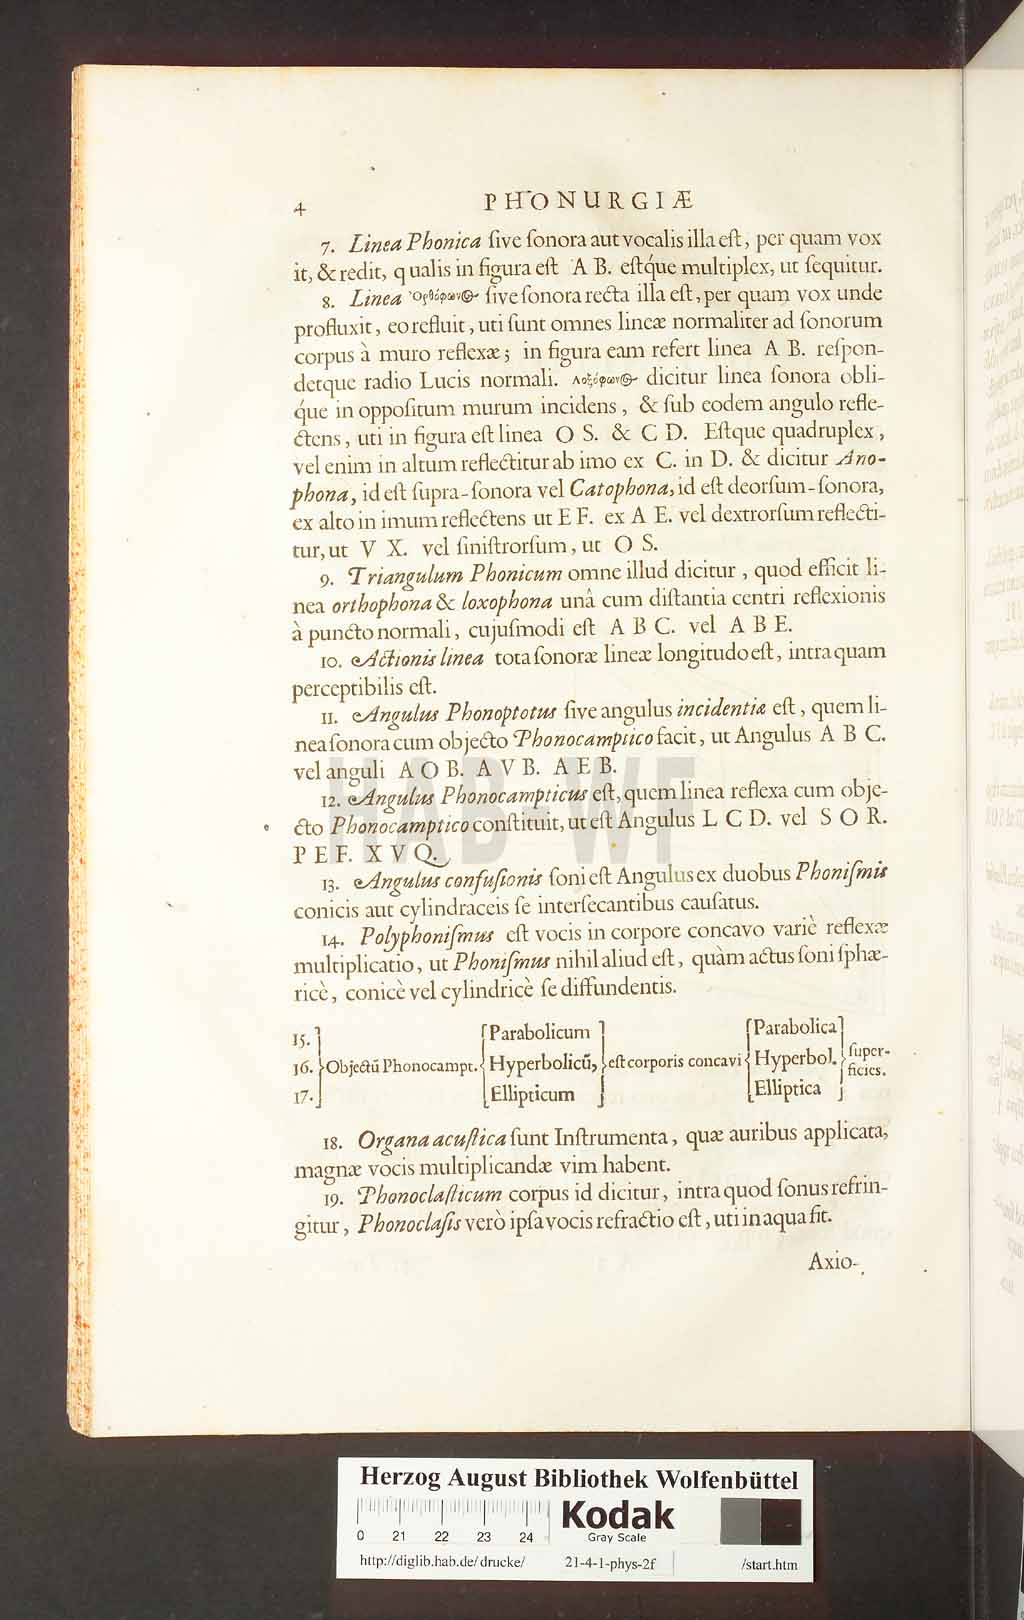 4 PHONURGIÆ
7. Linea Phonica ſive ſonora aut vocalis illa eſt, per quam vox
it, & redit, qualis in figura eſt A B. eſtq́ue multiplex, ut ſequitur.
8. Linea Ὀρθόφων(Θ)- ſive ſonora recta illa eſt, per quam vox unde
profluxit, eo refluit, uti ſunt omnes lineæ normaliter ad ſonorum
corpus à muro reflexæ; in figura eam refert linea A B. reſpon-
detque radio Lucis normali. Λοξόφων(Θ)- dicitur linea ſonora obli-
q́ue in oppoſitum murum incidens, & ſub eodem angulo refle-
ctens, uti in figura eſt linea O S. & C D. Eſtque quadruplex,
vel enim in altum reflectitur ab imo ex C. in D. & dicitur Ano-
phona, id eſt ſupra-ſonora vel Catophona, id eſt deorſum-ſonora,
ex alto in imum reflectens ut E F. ex A E. vel dextrorſum reflecti-
tur, ut V X. vel ſiniſtrorſum, ut O S.
9. Triangulum Phonicum omne illud dicitur, quod efficit li-
nea orthophona & loxophona unâ cum diſtantia centri reflexionis
à puncto normali, cujuſmodi eſt A B C. vel A B E.
10. Actionis linea tota ſonoræ lineæ longitudo eſt, intra quam
perceptibilis eſt.
11. Angulus Phonoptotus ſive angulus incidentiæ eſt, quem li-
nea ſonora cum objecto Phonocamptico facit, ut Angulus A B C.
vel anguli A O B. A V B. A E B.
12. Angulus Phonocampticus eſt, quem linea reflexa cum obje-
cto Phonocamptico conſtituit, ut eſt Angulus L C D. vel S O R.
P E F. X V Q.
13. Angulus confuſionis ſoni eſt Angulus ex duobus Phoniſmis
conicis aut cylindraceis ſe interſecantibus cauſatus.
14. Polyphoniſmus eſt vocis in corpore concavo variè reflexæ
multiplicatio, ut Phoniſmus nihil aliud eſt, quàm actus ſoni ſphæ-
ricè, conicè vel cylindricè ſe diffundentis.
15. Parabolicum Parabolica
16. Objectū Phonocampt. Hyperbolicū, eſt corporis concavi Hyperbol. ſuper-
ficies.
17. Ellipticum Elliptica
18. Organa acuſtica ſunt Inſtrumenta, quæ auribus applicata,
magnæ vocis multiplicandæ vim habent.
19. Phonoclaſticum corpus id dicitur, intra quod ſonus refrin-
gitur, Phonoclaſis verò ipſa vocis refractio eſt, uti in aqua fit.
Axio-
HAB-WF
Herzog August Bibliothek Wolfenbüttel
Kodak
Gray Scale
0 21 22 23 24
http://diglib.hab.de/drucke/ 21-4-1-phys-2f /start.htm